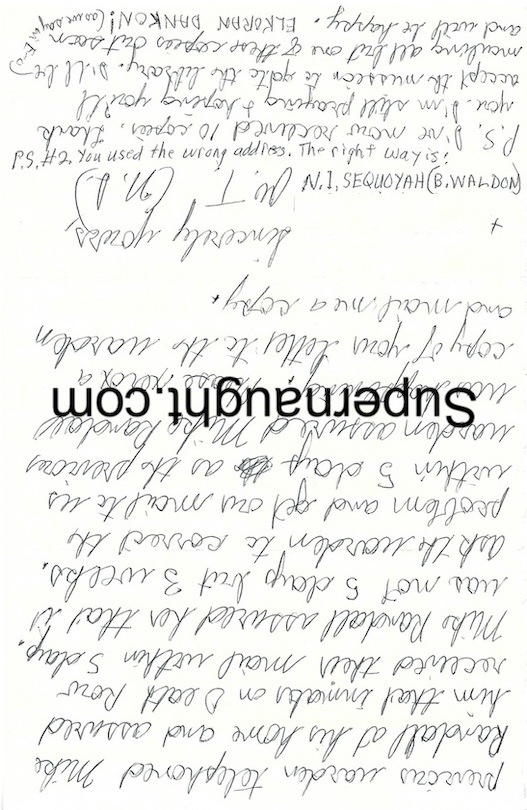 previous warden telephoned Mike
Randall at his home and assured
him that inmates on Death Row
received their mail within 5 days.
Mike Randall assured her that it
was not 5 days but 3 weeks.
ask the warden to correct the
problem and get our mail to us
within 5 days as the previous
warden assured Mike Randall
was xerox a
Supernaught.com
copy of your letter to the warden
and mail me a copy.
+
Sincerely yours,
N.I. SEQUOYAH (B. WALDON)
P.S. #2. You used the wrong address. The right way is:
P.S. I've now received 10 copies. Thank
you. I'm still praying + hoping you'll
accept the mission to the library. I'll be
mailing all but one of these copies out soon
and will be happy. ELKORAN DANKON! (as we say in E-o)